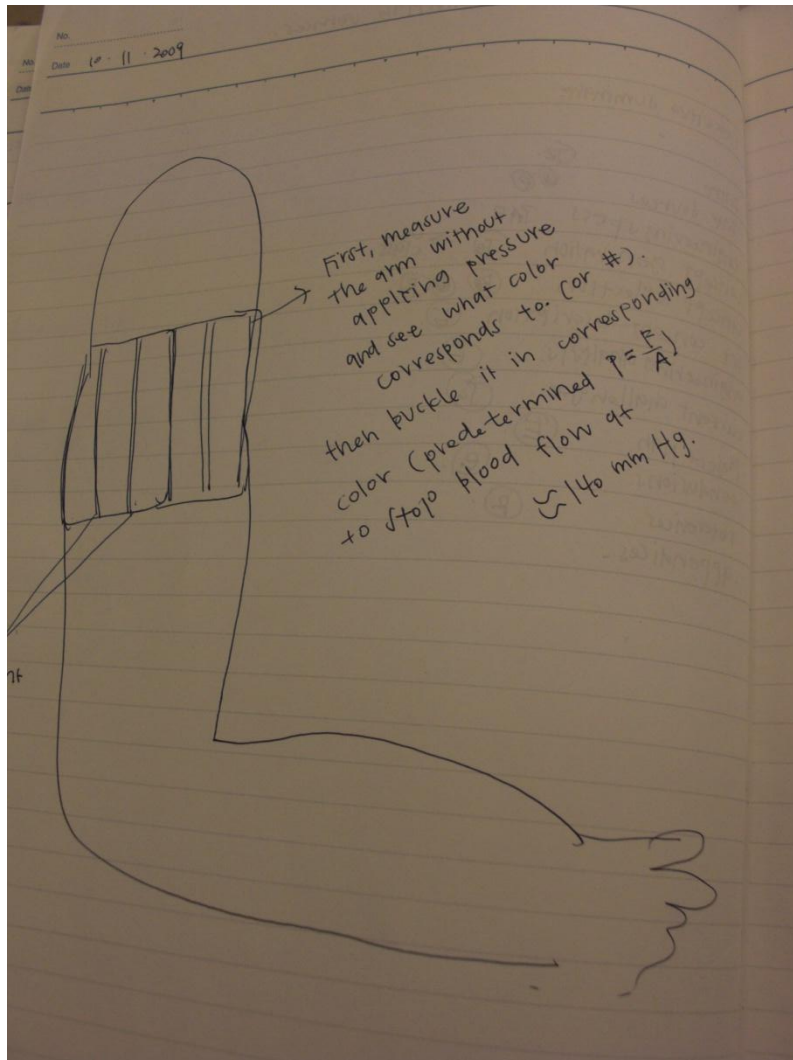 No.
Date 10 · 11 · 2009
No
Date
First, measure
the arm without
applying pressure
and see what color
corresponds to. (or #).
then buckle it in corresponding
color (predetermined P = F/A)
to stop blood flow at
≈ 140 mm Hg.
nt